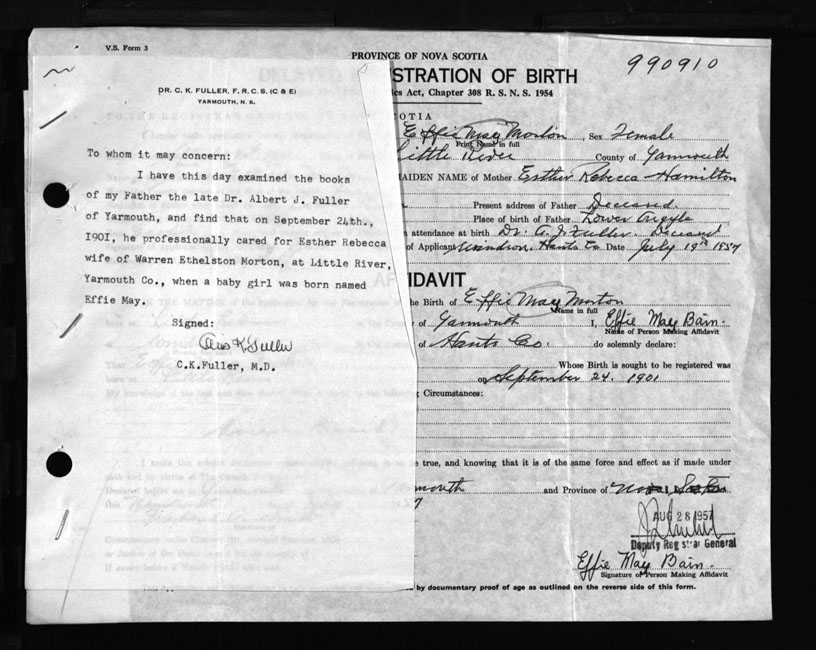 V.S. Form 3
PROVINCE OF NOVA SCOTIA
990910
STRATION OF BIRTH
Act, Chapter 308 R. S. N. S. 1954
DR. C. K. FULLER, F. R. C. S. (C & E)
YARMOUTH, N. S.
To whom it may concern:
I have this day examined the books
of my Father the late Dr. Albert J. Fuller
of Yarmouth, and find that on September 24th.,
I90I, he professionally cared for Esther Rebecca
wife of Warren Ethelston Morton, at Little River,
Yarmouth Co., when a baby girl was born named
Effie May.
Signed:
C.K.Fuller, M.D.
COTIA
Effie May Morton, Sex Female
Print Name in full
Little River County of Yarmouth
MAIDEN NAME of Mother Esther Rebecca Hamilton
Present address of Father Deceased
Place of birth of Father Lower Argyle
attendance at birth Dr. A. J. Fuller. Deceased
of Applicant Windsor, Hants Co Date July 19th 1957
FIDAVIT
the Birth of Effie May Morton
Name in full
of Yarmouth I, Effie May Bain.
Name of Person Making Affidavit
of Hants Co. do solemnly declare:
Whose Birth is sought to be registered was
on September 24. 1901
Circumstances:
true, and knowing that it is of the same force and effect as if made under
mouth and Province of Nova Scotia
AUG 28 1957
Deputy Registrar General
Effie May Bain
Signature of Person Making Affidavit
by documentary proof of age as outlined on the reverse side of this form.